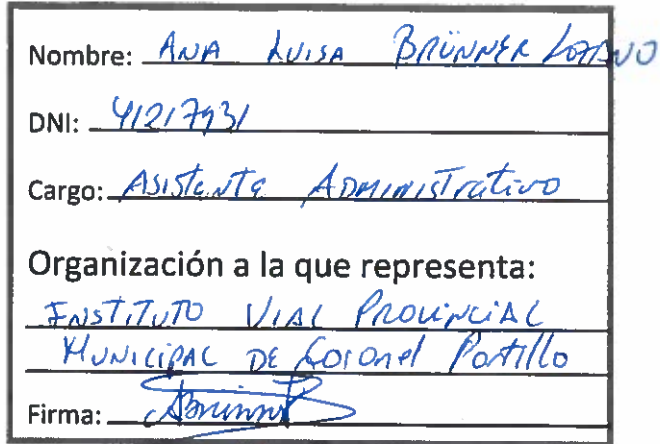 Nombre: ANA LUISA BRÜNNER LOZANO
DNI: 41217931
Cargo: Asistente Administrativo
Organización a la que representa:
INSTITUTO VIAL PROVINCIAL
MUNICIPAL DE Coronel Portillo
Firma: